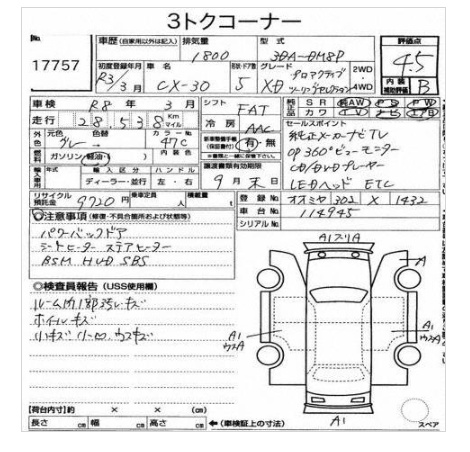 3トクコーナー
No.
17757
車歴 (自家用以外は記入) 排気量 1800 型式 3DA-DM8P
評価点 4.5
初度登録年月 R3/3月 車名 CX-30 ドア数 5 グレード XD プロアクティブ ツーリングセレクション 2WD・4WD
内装補助評価 B
車検 R8年 3月 シフト FAT 純正品 SR AW PS PW
走行 28,538 Km マイル 冷房 AAC カワ TV
外色 元色 グレー 色替 カラーNo. 47C 新車整備手帳(保証書) 有・無
セールスポイント
純正メーカーナビTV
OP360°ビューモニター
CD/DVDプレーヤー
LEDヘッド ETC
燃料 ガソリン・軽油・( ) 内装色
※書類と一緒に保管下さい。
譲渡書類有効期限
9月末日
輸入車用 年式 輸入区分 ハンドル
ディーラー・並行 左・右
リサイクル預託金 9720円 乗車定員 人 積載量 t
登録No. オオミヤ 302 ス 1432
車台No. 114945
シリアルNo.
◎注意事項 (修復・不具合箇所および状態等)
パワーバックドア
シートヒーター ステアヒーター
BSM HUD SBS
◎検査員報告 (USS使用欄)
ルーム内1部汚レキズ
ホイルキズ
小キズ 小凹 ウスキズ
A1フリA
A
A1
ウスA
A1
ウスA
A1
スペア
【荷台内寸】約 × × (cm)
長さ cm 幅 cm 高さ cm ←(車検証上の寸法)